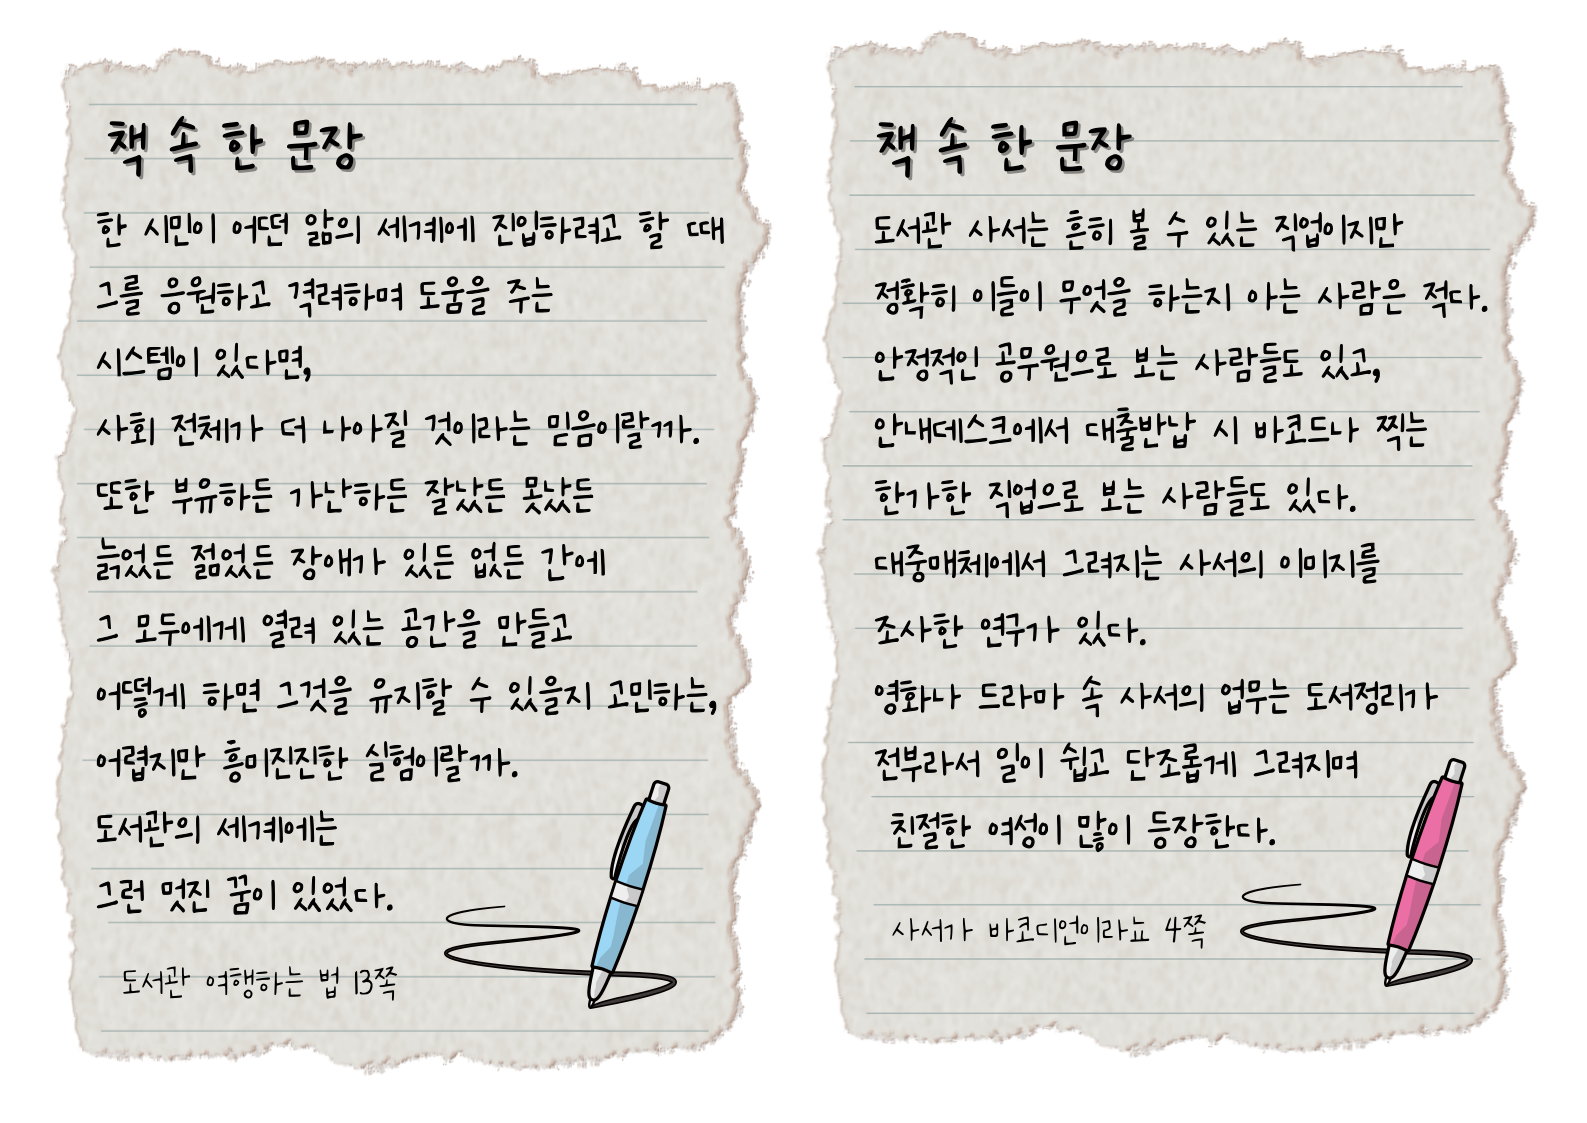 책 속 한 문장
한 시민이 어떤 앎의 세계에 진입하려고 할 때
그를 응원하고 격려하며 도움을 주는
시스템이 있다면,
사회 전체가 더 나아질 것이라는 믿음이랄까.
또한 부유하든 가난하든 잘났든 못났든
늙었든 젊었든 장애가 있든 없든 간에
그 모두에게 열려 있는 공간을 만들고
어떻게 하면 그것을 유지할 수 있을지 고민하는,
어렵지만 흥미진진한 실험이랄까.
도서관의 세계에는
그런 멋진 꿈이 있었다.
도서관 여행하는 법 13쪽
책 속 한 문장
도서관 사서는 흔히 볼 수 있는 직업이지만
정확히 이들이 무엇을 하는지 아는 사람은 적다.
안정적인 공무원으로 보는 사람들도 있고,
안내데스크에서 대출반납 시 바코드나 찍는
한가한 직업으로 보는 사람들도 있다.
대중매체에서 그려지는 사서의 이미지를
조사한 연구가 있다.
영화나 드라마 속 사서의 업무는 도서정리가
전부라서 일이 쉽고 단조롭게 그려지며
친절한 여성이 많이 등장한다.
사서가 바코디언이라뇨 4쪽